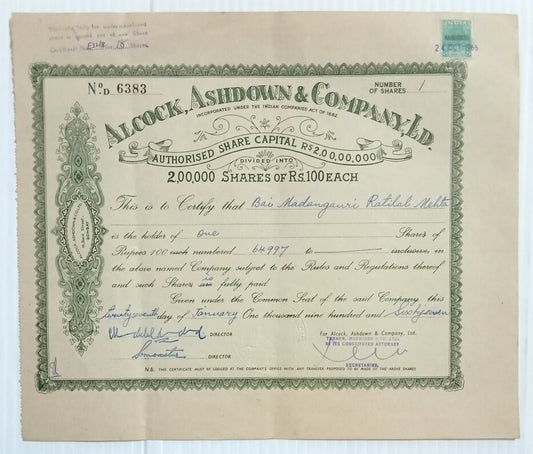 is issued out of one Share
Certificate No. E5118 for 15 Shares
INDIA
24 OCT 1966
No. D. 6383
NUMBER OF SHARES 1
ALCOCK, ASHDOWN & COMPANY, LD.
INCORPORATED UNDER THE INDIAN COMPANIES ACT OF 1882.
AUTHORISED SHARE CAPITAL RS 2,00,00,000
DIVIDED INTO
2,00,000 SHARES OF RS. 100 EACH
This is to Certify that Bai Madangauri Ratilal Mehta
is the holder of One Shares of
Rupees 100 each numbered 64997 to inclusive, in
the above named Company subject to the Rules and Regulations thereof
and such Shares is are fully paid.
Given under the Common Seal of the said Company, this
twentyseventh day of January One thousand nine hundred and Sixtyseven
DIRECTOR
DIRECTOR
For Alcock, Ashdown & Company, Ltd.
TURNER, MORRISON & CO. LTD.
BY ITS CONSTITUTED ATTORNEY
SECRETARIES.
N.B. THIS CERTIFICATE MUST BE LODGED AT THE COMPANY'S OFFICE WITH ANY TRANSFER PROPOSED TO BE MADE OF THE ABOVE SHARES